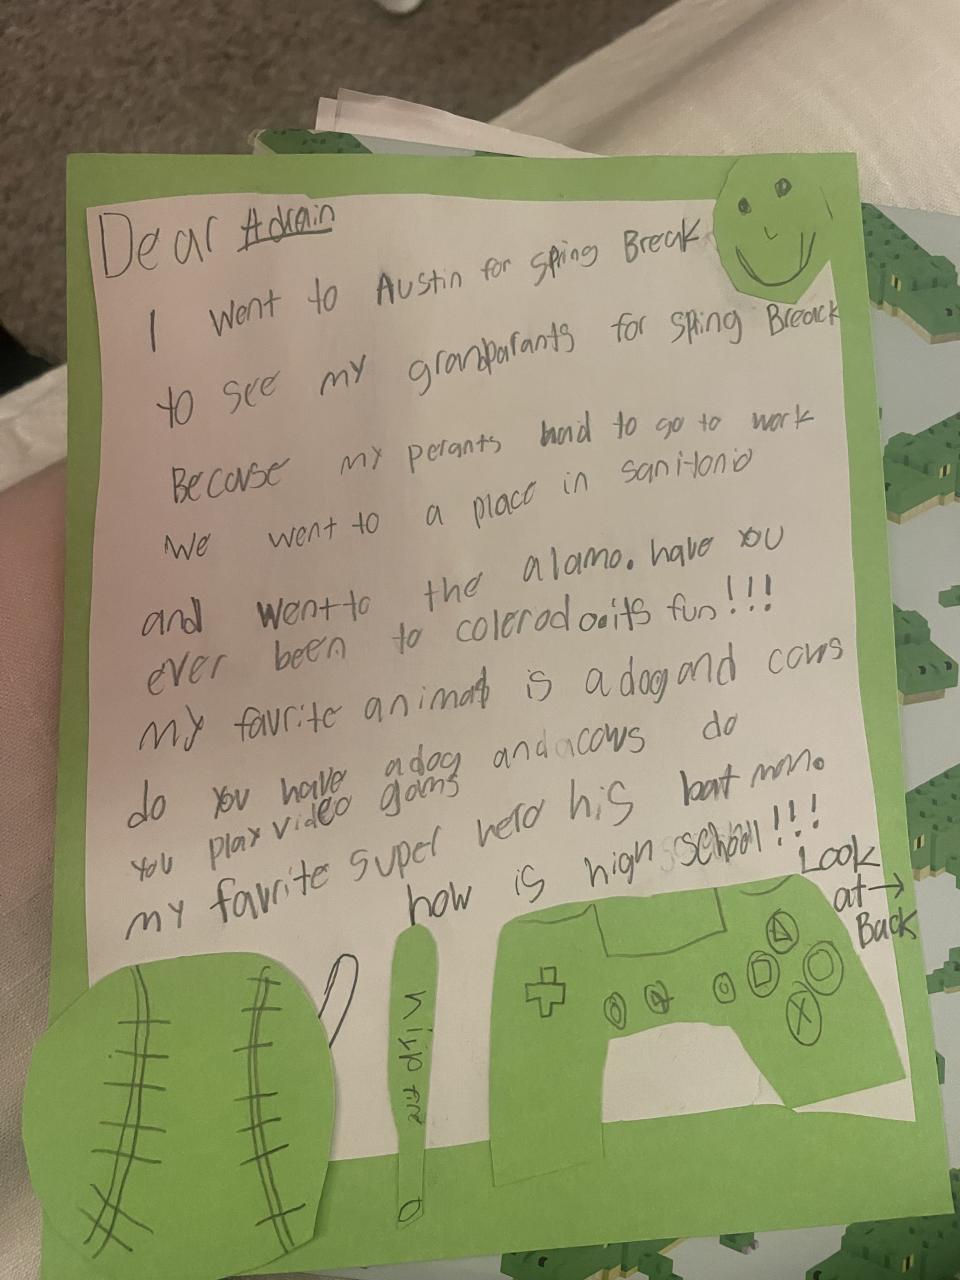 Dear Adrain
I went to Austin for sping Break
to see my granparants for sping Breack
Becouse my perants had to go to work
we went to a place in sanitonio
and went to the alamo. have you
ever been to colerodo it's fun!!!
my favrite animal is a dog and cows
do you have a dog and a cows do
you play video gams
my favrite super hero his bat man.
how is high school!!!
Look
at →
Back